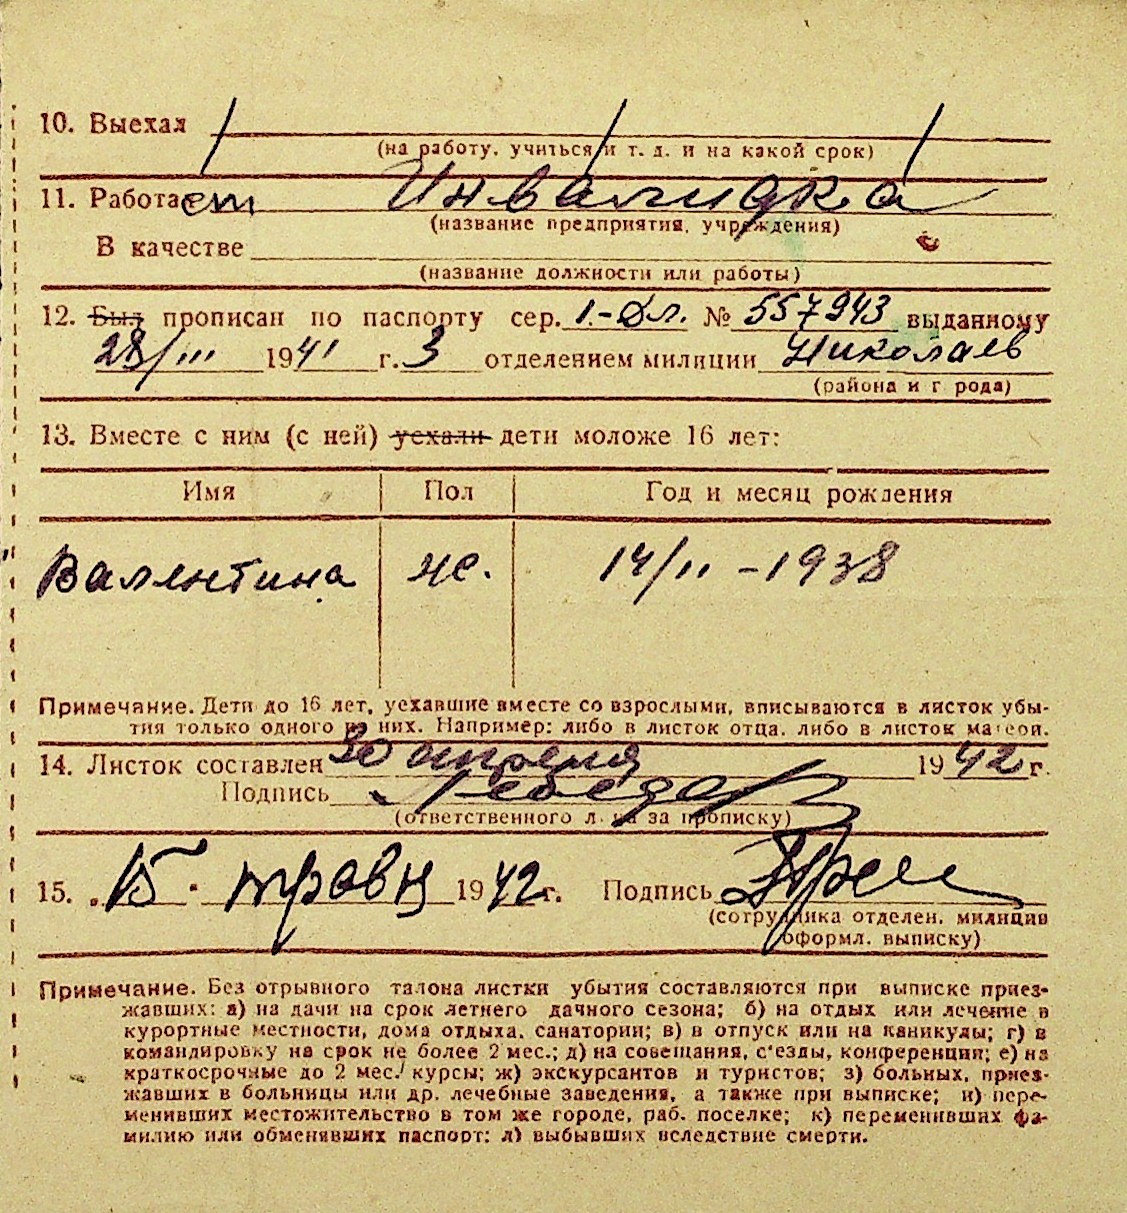 10. Выехал
(на работу, учиться и т. д. и на какой срок)
11. Работает Инвалидка
(название предприятия, учреждения)
В качестве
(название должности или работы)
12. Был прописан по паспорту сер. 1.-Дл. № 557943 выданному
28/III 1941 г. 3 отделением милиции Николаев
(района и г рода)
13. Вместе с ним (с ней) уехали дети моложе 16 лет:
Имя Пол Год и месяц рождения
Валентина ж. 14/II - 1938
Примечание. Дети до 16 лет, уехавшие вместе со взрослыми, вписываются в листок убы-
тия только одного из них. Например: либо в листок отца, либо в листок матери.
14. Листок составлен 30 апреля 1942 г.
Подпись
(ответственного л на за прописку)
15. 15 травня 1942 г. Подпись
(сотрудника отделен. милиции
оформл. выписку)
Примечание. Без отрывного талона листки убытия составляются при выписке приез-
жавших: а) на дачи на срок летнего дачного сезона; б) на отдых или лечение в
курортные местности, дома отдыха, санатории; в) в отпуск или на каникулы; г) в
командировку на срок не более 2 мес.; д) на совещания, с'езды, конференции; е) на
краткосрочные до 2 мес. курсы; ж) экскурсантов и туристов; з) больных, приез-
жавших в больницы или др. лечебные заведения, а также при выписке; и) пере-
менивших местожительство в том же городе, раб. поселке; к) переменивших фа-
милию или обменявших паспорт; л) выбывших вследствие смерти.